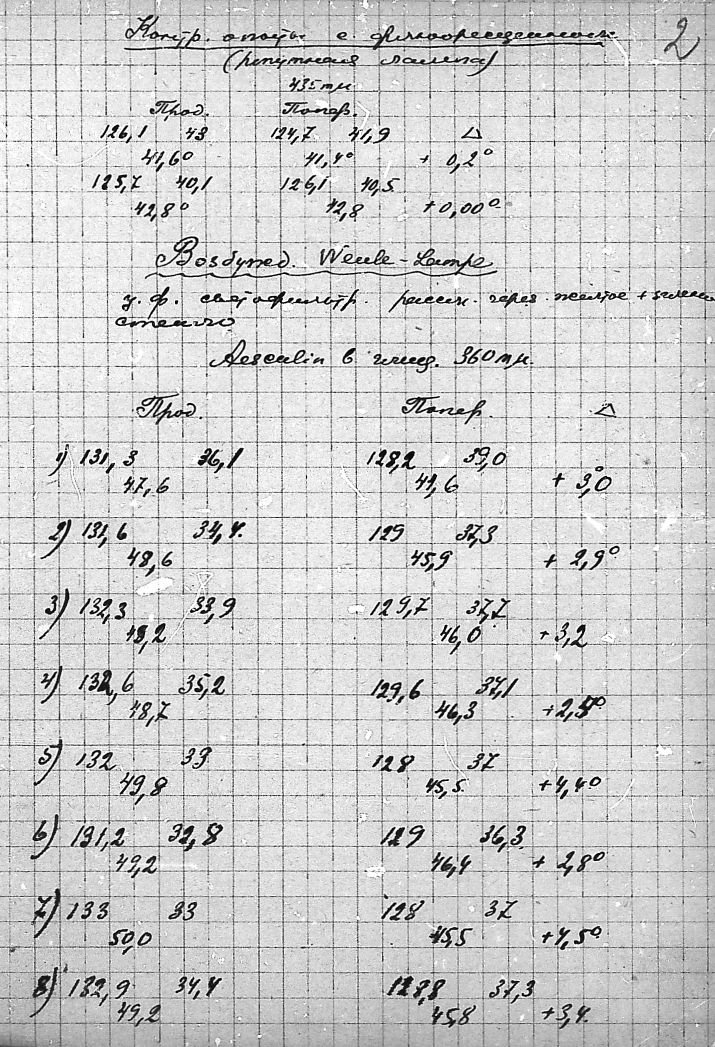 2
Контр. опыты с флюоресценцией
(ртутная лампа)
435 mμ
Прод. Попер.
126,1 43 124,7 41,9 Δ
41,6° 41,4° + 0,2°
125,7 40,1 126,1 40,5
42,8° 42,8 +0,00°
Возбужд. Weule-Lampe
у.ф. светофильтр. рассм. через желтое +
стекло
Aesculin в глиц. 360 mμ.
Прод. Попер. Δ
1) 131,3 36,1 128,2 39,0
47,6 44,6 + 3,0°
2) 131,6 34,4 129 37,3
48,6 45,9 + 2,9°
3) 132,3 33,9 129,7 37,7
49,2 46,0 +3,2
4) 132,6 35,2 129,6 37,1
48,7 46,3
5) 132 33 128 37
49,8 45,5 +4,4°
6) 131,2 32,8 129 36,3
49,2 46,4 + 2,8°
7) 133 33 128 37
50,0 45,5 +4,5°
8) 132,9 34,4 128,8 37,3
49,2 45,8 +3,4